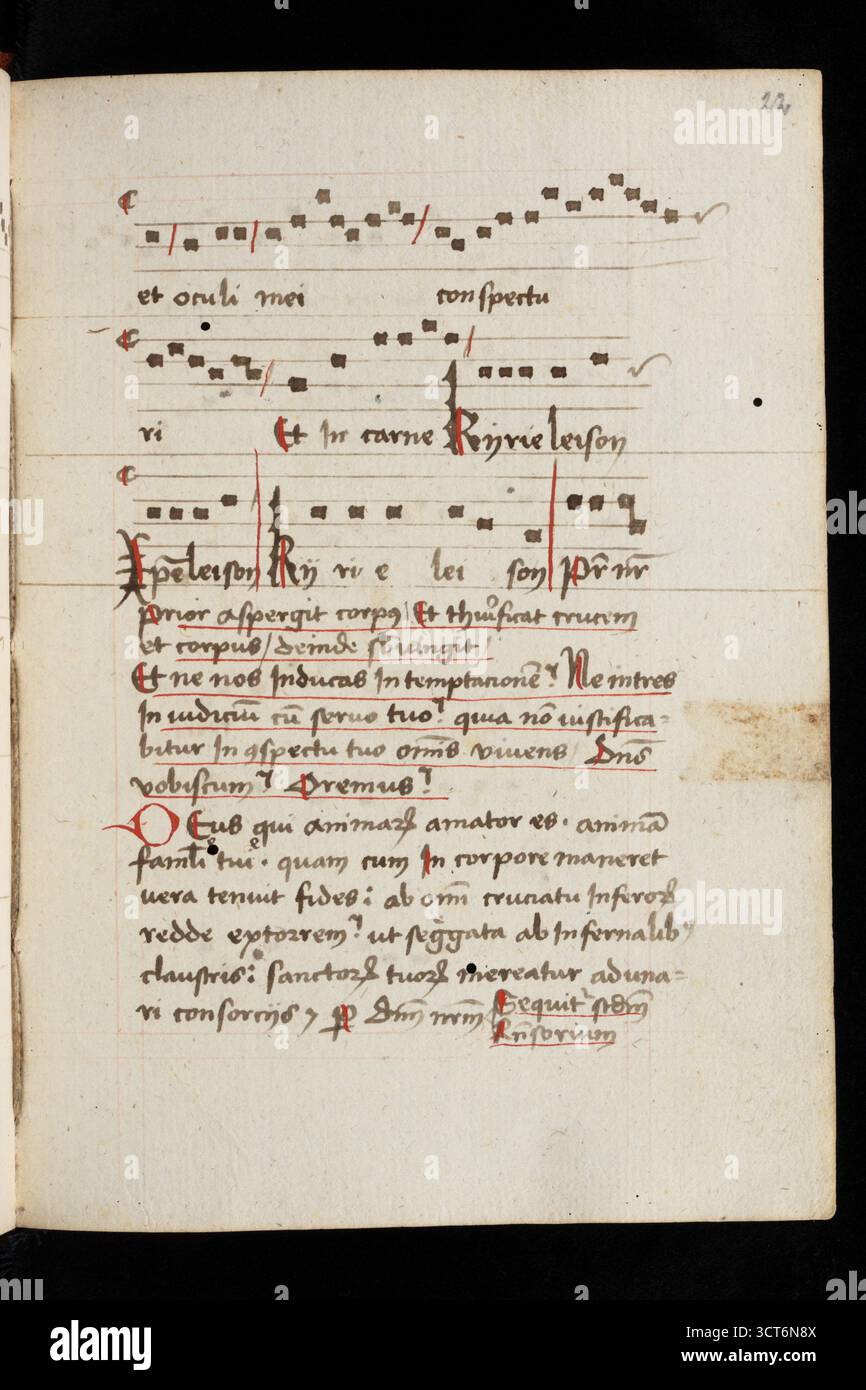 22
et oculi mei conspectu
ri Et In carne Kyrie leison
Xpē leison Ky ri e lei son Pr̄ nr̄
Prior aspergit corpꝰ / Et thurificat crucem
et corpus / deinde
Et ne nos Inducas In temptacionē? Ne intres
In iudiciū cū servo tuo? quia nō iustifica=
bitur In ꝯspectu tuo omīs vivens / Dn̄s
vobiscum? Oremus?
DEus qui animaꝝ amator es · animā
famuli tui · quam cum In corpore maneret
vera tenuit fides: ab omī cruciatu Inferoꝝ
redde extorrem? ut seggata ab Infernalibꝰ
claustris: sanctoꝝ tuoꝝ mereatur aduna=
ri consorcijs ⁊ P dn̄m nr̄m Sequit scdm̄
Rn̄sorium
alamy
Image ID: 3CT6N8X
www.alamy.com